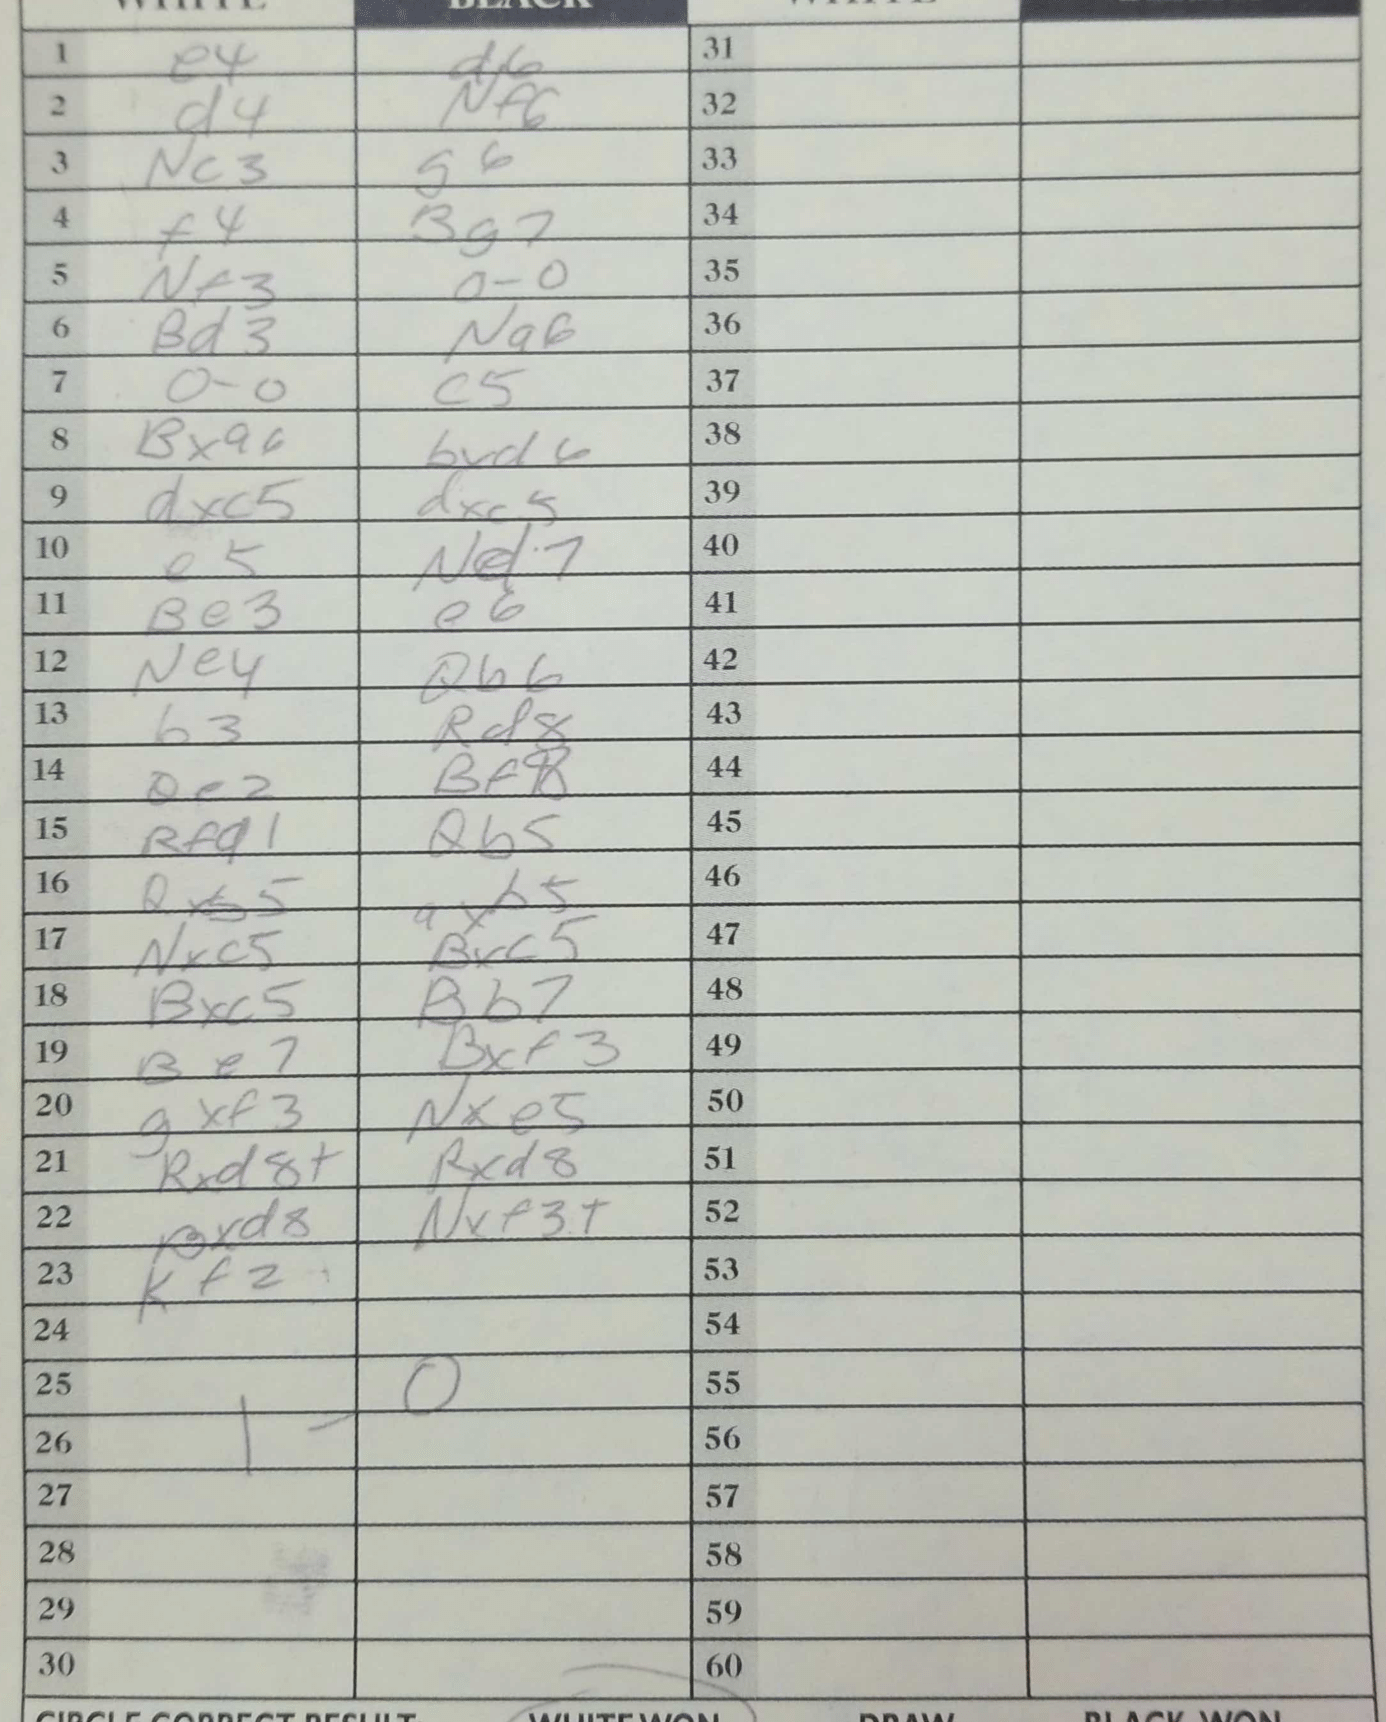 WHITE BLACK WHITE
1 e4 d6 31
2 d4 Nf6 32
3 Nc3 g6 33
4 f4 Bg7 34
5 Nf3 0-0 35
6 Bd3 Na6 36
7 0-0 c5 37
8 Bxa6 bxd6 38
9 dxc5 dxc5 39
10 e5 Nd7 40
11 Be3 e6 41
12 Ne4 Qb6 42
13 b3 Rd8 43
14 Qe2 Bf8 44
15 Rfd1 Qb5 45
16 Qxb5 axb5 46
17 Nxc5 Bxc5 47
18 Bxc5 Bb7 48
19 Be7 Bxf3 49
20 gxf3 Nxe5 50
21 Rxd8+ Rxd8 51
22 Bxd8 Nxf3+ 52
23 Kf2 53
24 54
25 55
1 - 0
26 56
27 57
28 58
29 59
30 60
CIRCLE CORRECT RESULT WHITE WON DRAW BLACK WON